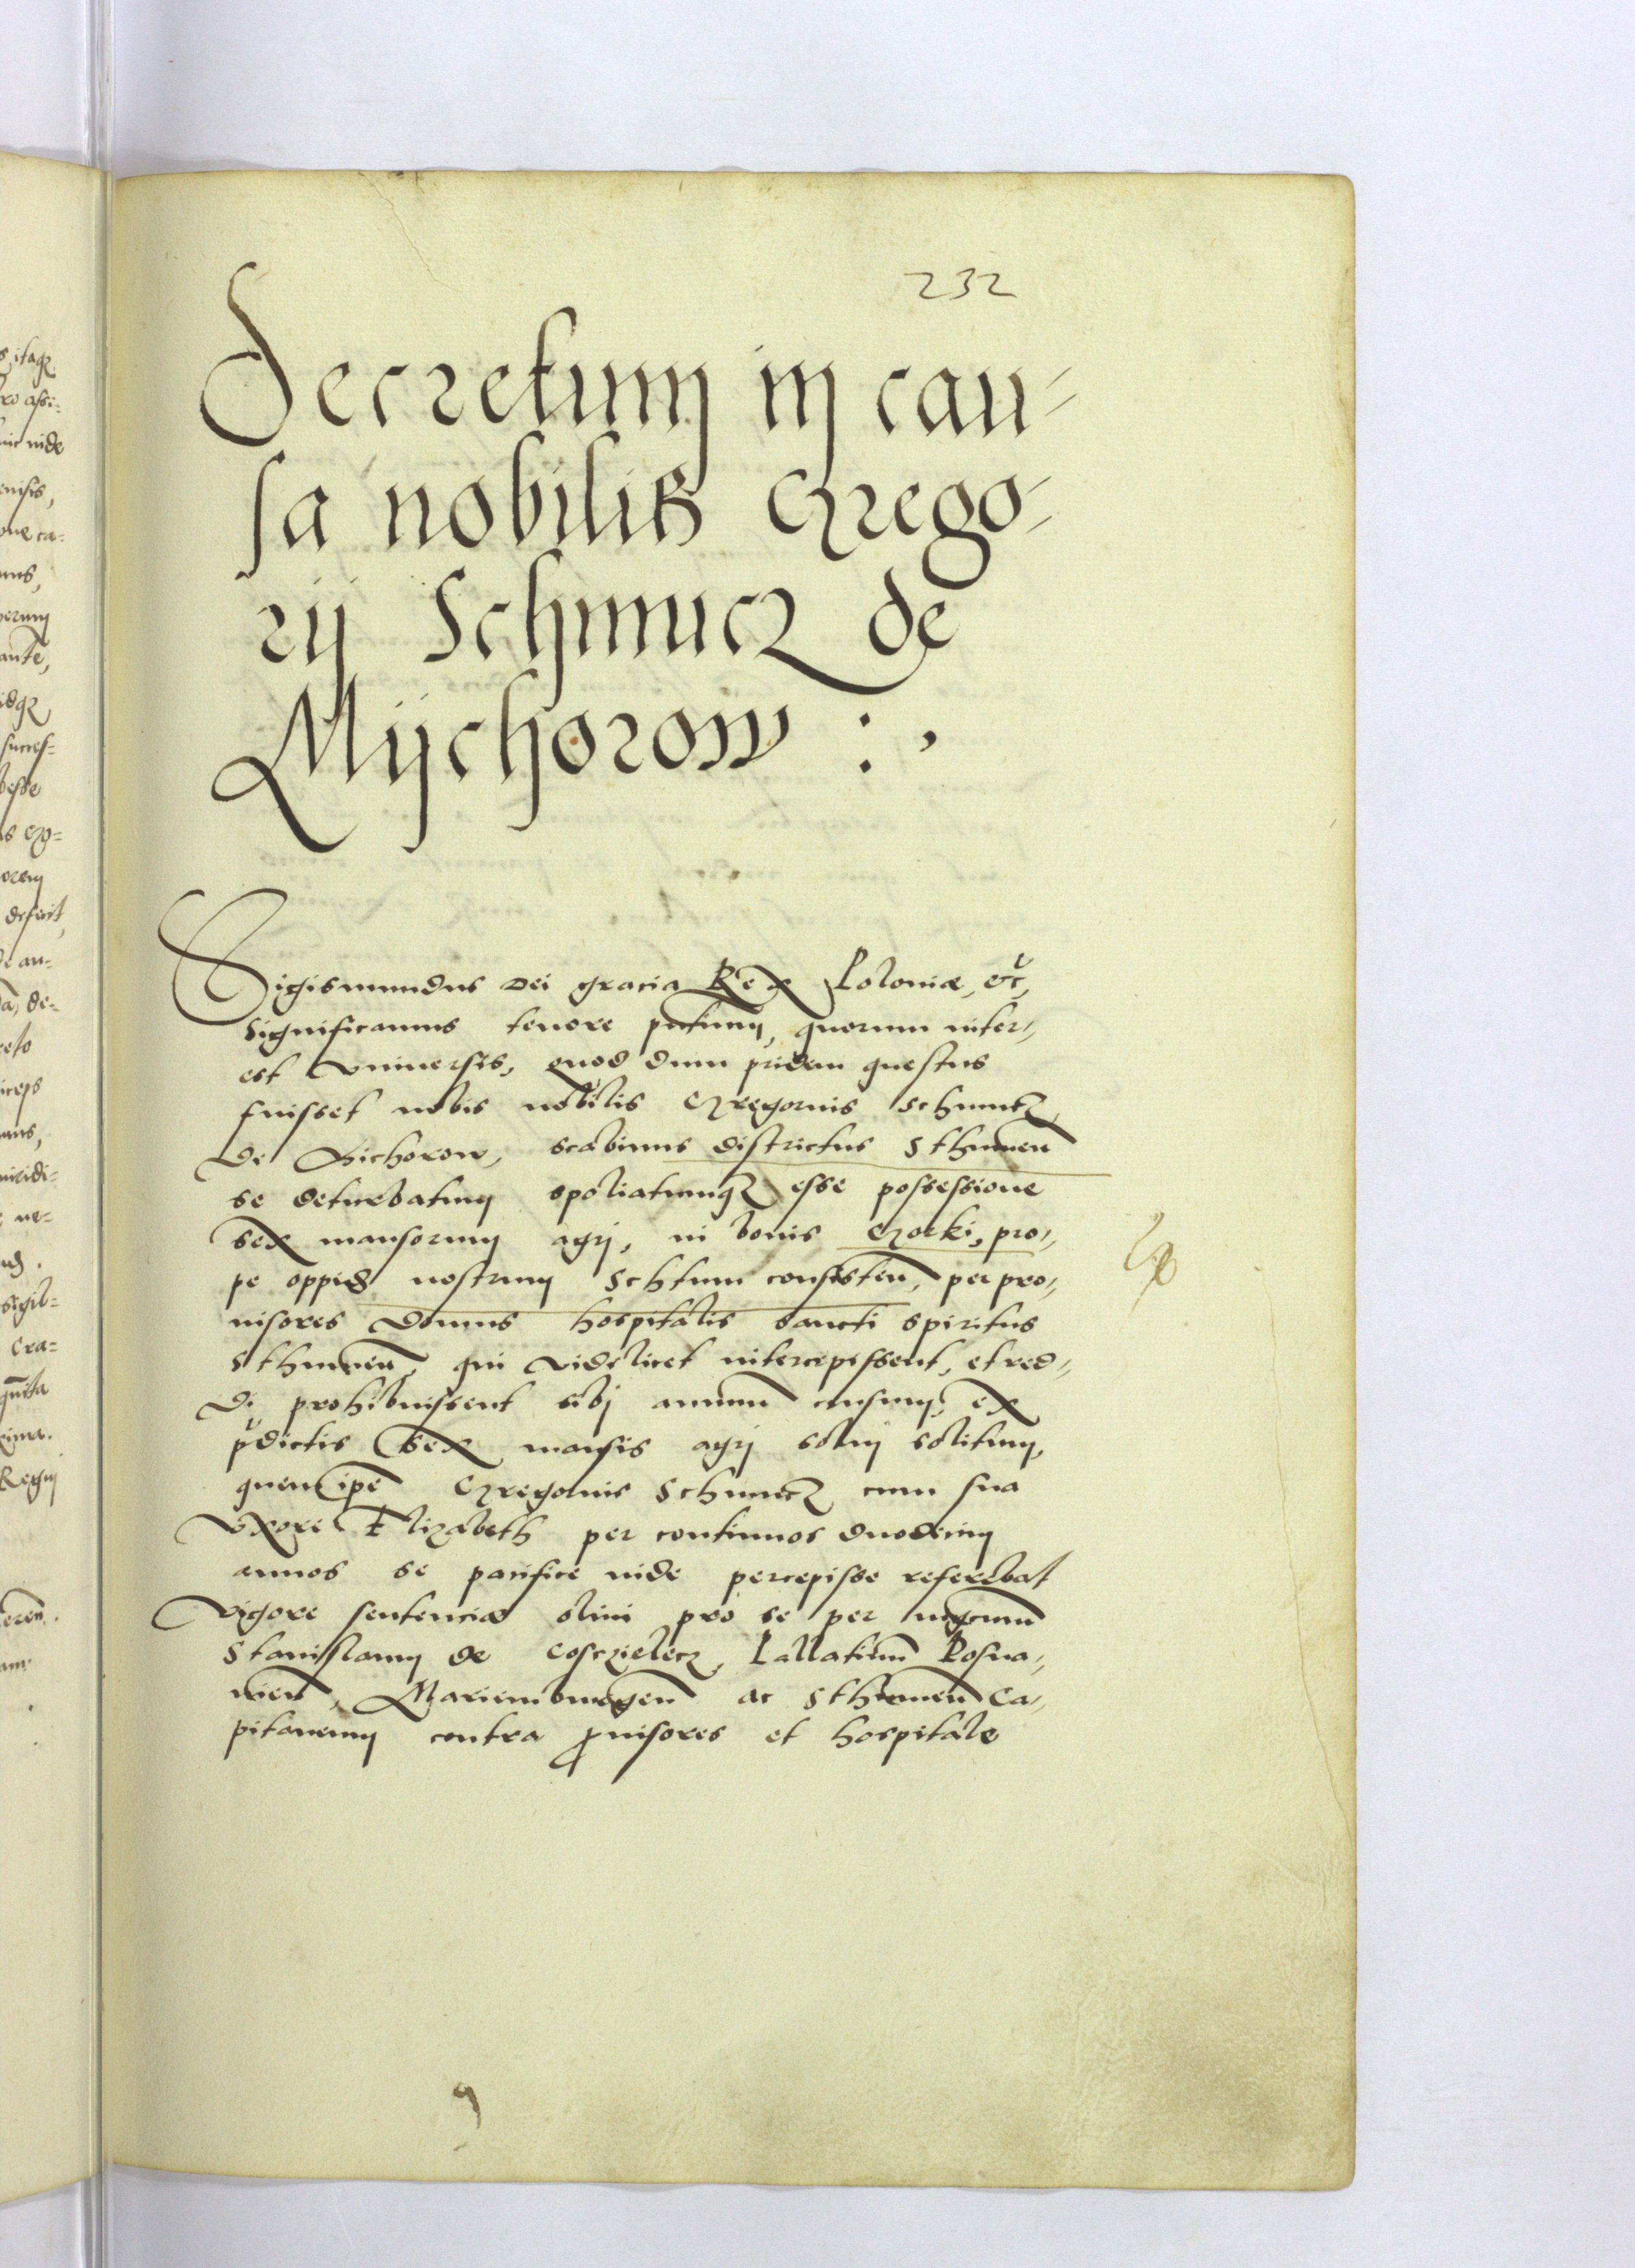 232
Decretum in cau-
sa nobilis Grego-
rij Schmucz de
Mijchorow :,
Sigismundus Dei gracia Rex Poloniæ, etc,
Significamus tenore pntium, quorum inter,
est Vniuersis, quod dum pridem questus
fuisset nobis nobilis Gregorius Schmucz,
De Michorow, scabinus districtus Sthumen
se deturbatum spoliatumqz esse possessione
sex mansorum agrj, in bonis Gorki, pro,
pe oppid nostrum Schtum consisten, per pro,
uisores Domus hospitalis sancti spiritus
Sthumen, qui videlicet intercepissent, et red,
Di prohibuissent sibj annuum censum, ex
pdictis sex mansis agrj solui solitum,
quem ipe Gregorius Schmucz cum sua
vxore Elizabeth per continuos duodecim
annos se pacifice inde percepisse referebat
Vigore sententiæ olim pro se per mgcum
Stanislaum de Cosczielecz, Pallatinum Posna,
nien, Mariemburgen ac Sthumen Ca,
pitaneum contra prouisores et hospitale